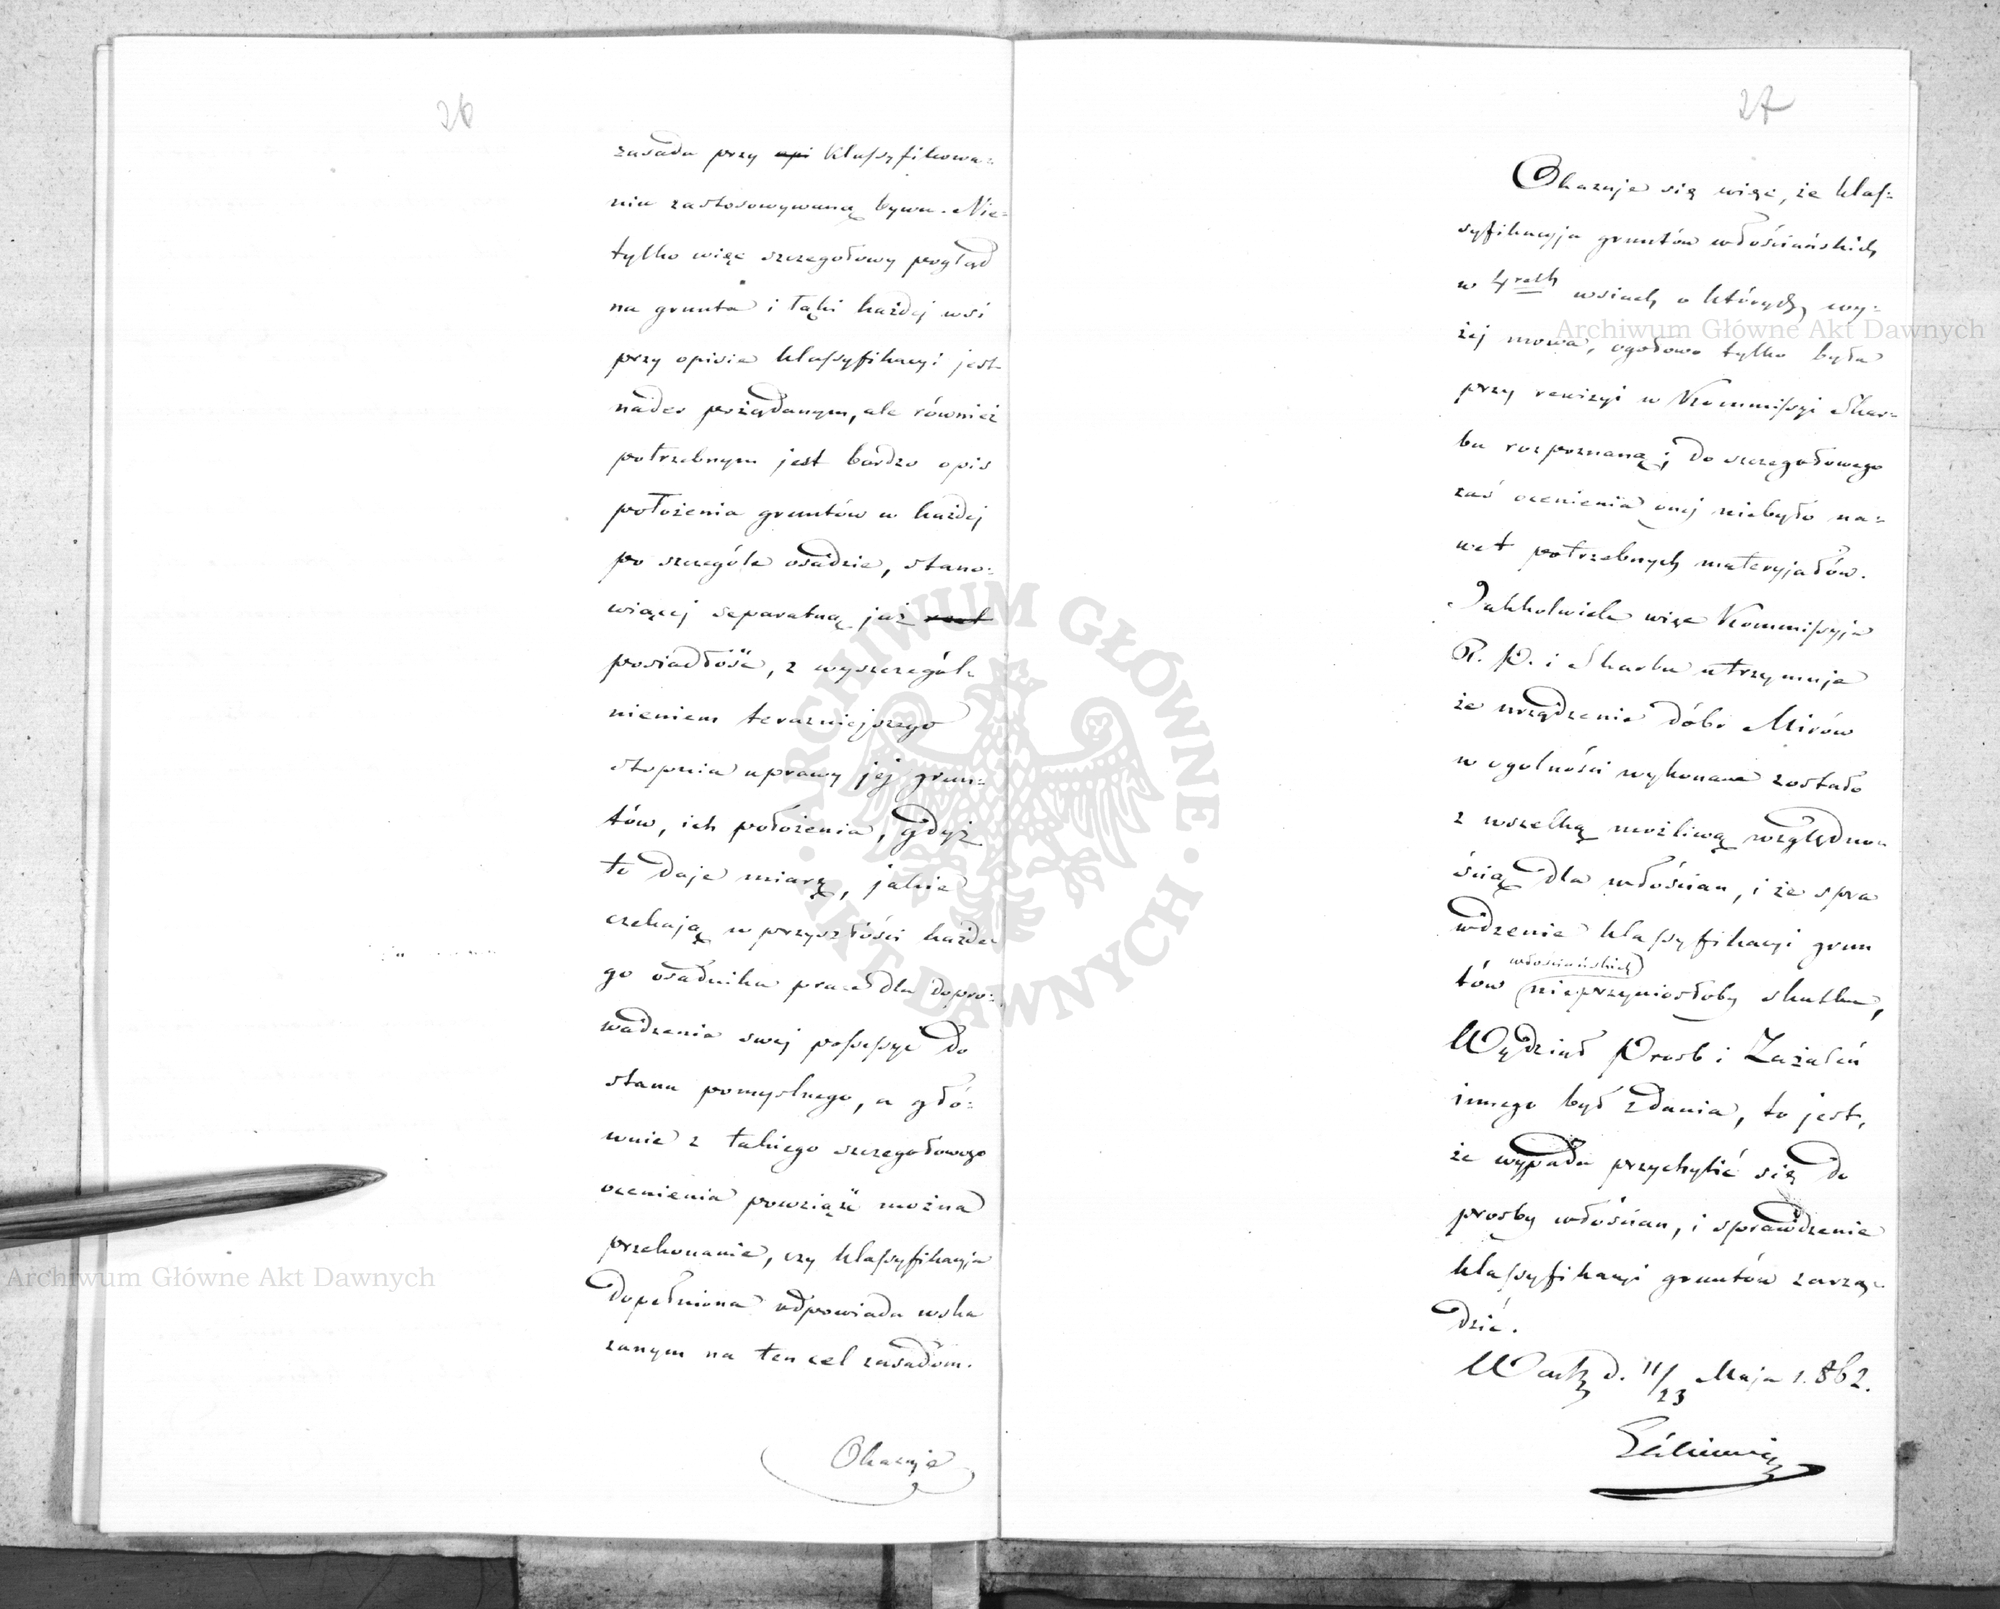 26
zasada przy opi klassyfikowa=
niu zastosowywaną bywa. Nie=
tylko więc szczegołowy pogląd
na grunta i łąki każdej wsi
przy opisie klassyfikacyi jest
nader pożądanym, ale również
potrzebnym jest bardzo opis
położenia gruntów w każdej
po szczególe osadzie, stano=
wiącej separatną już
posiadłość, z wyszczegól=
nieniem terazniejszego
stopnia uprawy jej grun=
tów, ich położenia, gdyż
to daje miarę, jakie
czekają w przyszłości każde=
go osadnika prace dla dopro=
wadzenia swej possessyi do
stanu pomyslnego, a głó=
wnie z takiego szczegołowego
ocenienia powziąść można
przekonanie, czy klassyfikacyja
dopełniona odpowiada wska
zanym na ten cel zasadom.
Okazuje
27
Okazuje się więc, że klas=
syfikacyja gruntów włościańskich
w 4rech wsiach o których wy=
żej mowa, ogołowo tylko była
przy rewizyi w Kommissyi Skar=
bu rozpoznaną; do szczegołowego
zaś ocenienia onej niebyło na=
wet potrzebnych materyjałów.
Jakkolwiek więc Kommissyja
R. P. i Skarbu utrzymuje
że urządzenie dóbr Mirów
w ogolności wykonane zostało
z wszelką możliwą względno=
ścią dla włościan, i że spra
wdzenie klassyfikacyi grun
tów włościańskich nieprzyniosłoby skutku,
Wydział Prosb i Zażaleń
innego był zdania, to jest,
że wypada przychylić się do
prosby włościan, i sprawdzenie
klassyfikacyi gruntów zarzą=
dzić.
d. 11/23 Maja 1862.
Archiwum Główne Akt Dawnych
Archiwum Główne Akt Dawnych
ARCHIWUM GŁÓWNE · AKT DAWNYCH ·